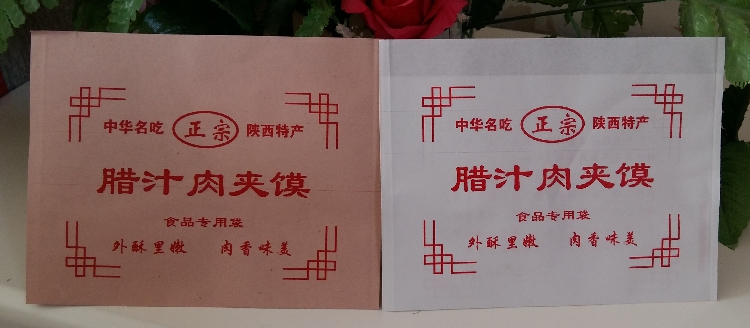 中华名吃 正宗 陕西特产
腊汁肉夹馍
食品专用袋
外酥里嫩 肉香味美
中华名吃 正宗 陕西特产
腊汁肉夹馍
食品专用袋
外酥里嫩 肉香味美